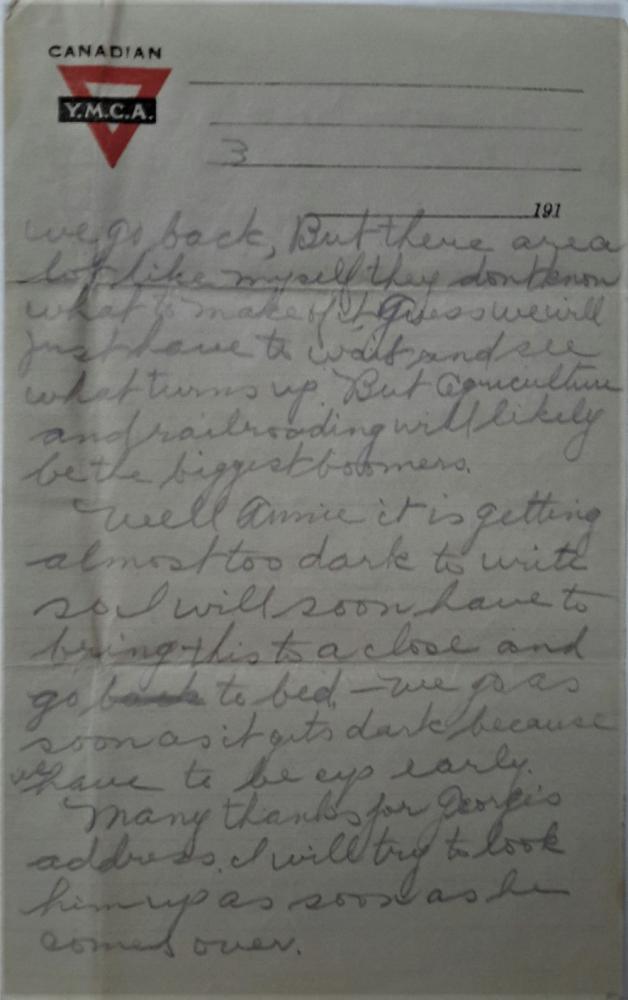 CANADIAN
Y.M.C.A.
3
191
we go back, But there are a
lot like myself they dont know
what to make of it I guess we will
just have to wait and see
what turns up. But Agriculture
and railroading will likely
be the biggest boomers.
Well Annie it is getting
almost too dark to write
so I will soon have to
bring this to a close and
go back to bed - we go as
soon as it gets dark because
we have to be up early.
Many thanks for George's
address, I will try to look
him up as soon as he
comes over.